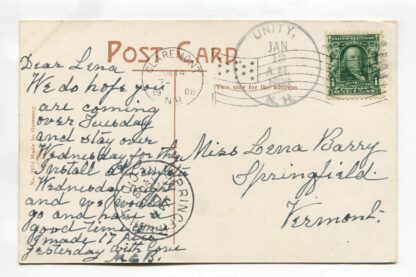 POST CARD
This side for the address
CLAREMONT
N.H.
UNITY,
JAN
N.H.
Dear Lena
We do hope you
are coming
over Tuesday
and stay over
Wednesday for the
Install
Wednesday night
and we would
go and have a
good time
I made 17 pies
yesterday with love
M.E.B.
Miss Lena Barry
Springfield.
Vermont.
Made in Germany